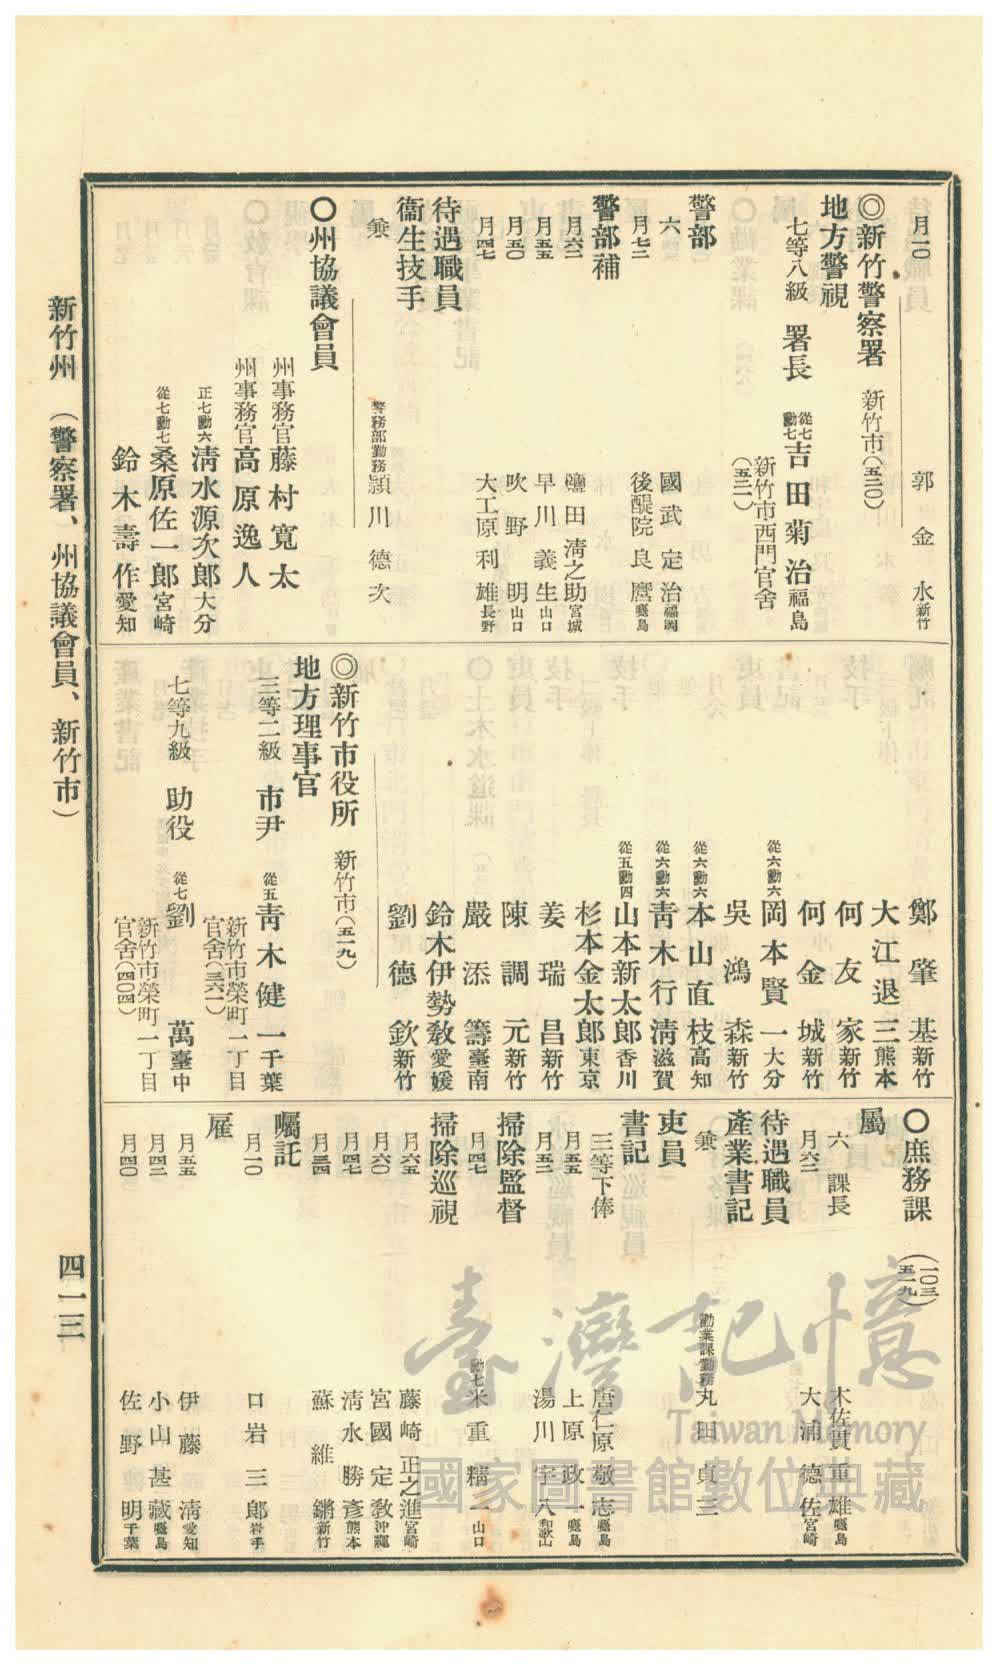 新竹州 (警察署、州協議會員、新竹市)
四一三
月二〇 郭金水 新竹
◎新竹警察署 新竹市(五三〇)
地方警視
七等八級 署長 從七勳七 吉田菊治 福島
新竹市西門官舍
(五三一)
警部
六 國武定治 福岡
月七三 後醍院良麿 鹿兒島
警部補
月六二 鹽田淸之助 宮城
月五五 早川義生 山口
月五〇 吹野明 山口
月四七 大工原利雄 長野
待遇職員
衞生技手
兼 警務部勤務 潁川德次
〇州協議會員
州事務官 藤村寬太
州事務官 高原逸人
正七勳六 淸水源次郎 大分
從七勳七 桑原佐一郎 宮崎
鈴木壽作 愛知
鄭肇基 新竹
大江退三 熊本
何友家 新竹
何金城 新竹
從六勳六 岡本賢一 大分
吳鴻森 新竹
從六勳六 本山直枝 高知
從六勳六 靑木行淸 滋賀
從五勳四 山本新太郎 香川
杉本金太郎 東京
姜瑞昌 新竹
陳調元 新竹
嚴添籌 臺南
鈴木伊勢敎 愛媛
劉德欽 新竹
◎新竹市役所 新竹市(五一九)
地方理事官
三等二級 市尹 從五 靑木健一 千葉
新竹市榮町一丁目
官舍(三六一)
七等九級 助役 從七 劉萬 臺中
新竹市榮町一丁目
官舍(四〇四)
〇庶務課 (一〇三五一九)
屬
六 課長 木佐貫重雄 鹿兒島
月六二 大浦德佐 宮崎
待遇職員
產業書記
兼 勸業課勤務 丸田貞三
吏員
書記
三等下俸 唐仁原敬志 鹿兒島
月五五 上原政一 鹿兒島
月五二 湯川宇八 和歌山
掃除監督
月四七 勳七 米重精一 山口
掃除巡視
月六五 藤崎正之進 宮崎
月六〇 宮國定敎 沖繩
月四七 淸水勝彥 熊本
月三四 蘇維鏘 新竹
囑託
月二〇 口岩三郎 岩手
雇
月五五 伊藤淸 愛知
月四二 小山甚藏 鹿兒島
月四〇 佐野明 千葉
臺灣記憶
Taiwan Memory
國家圖書館數位典藏